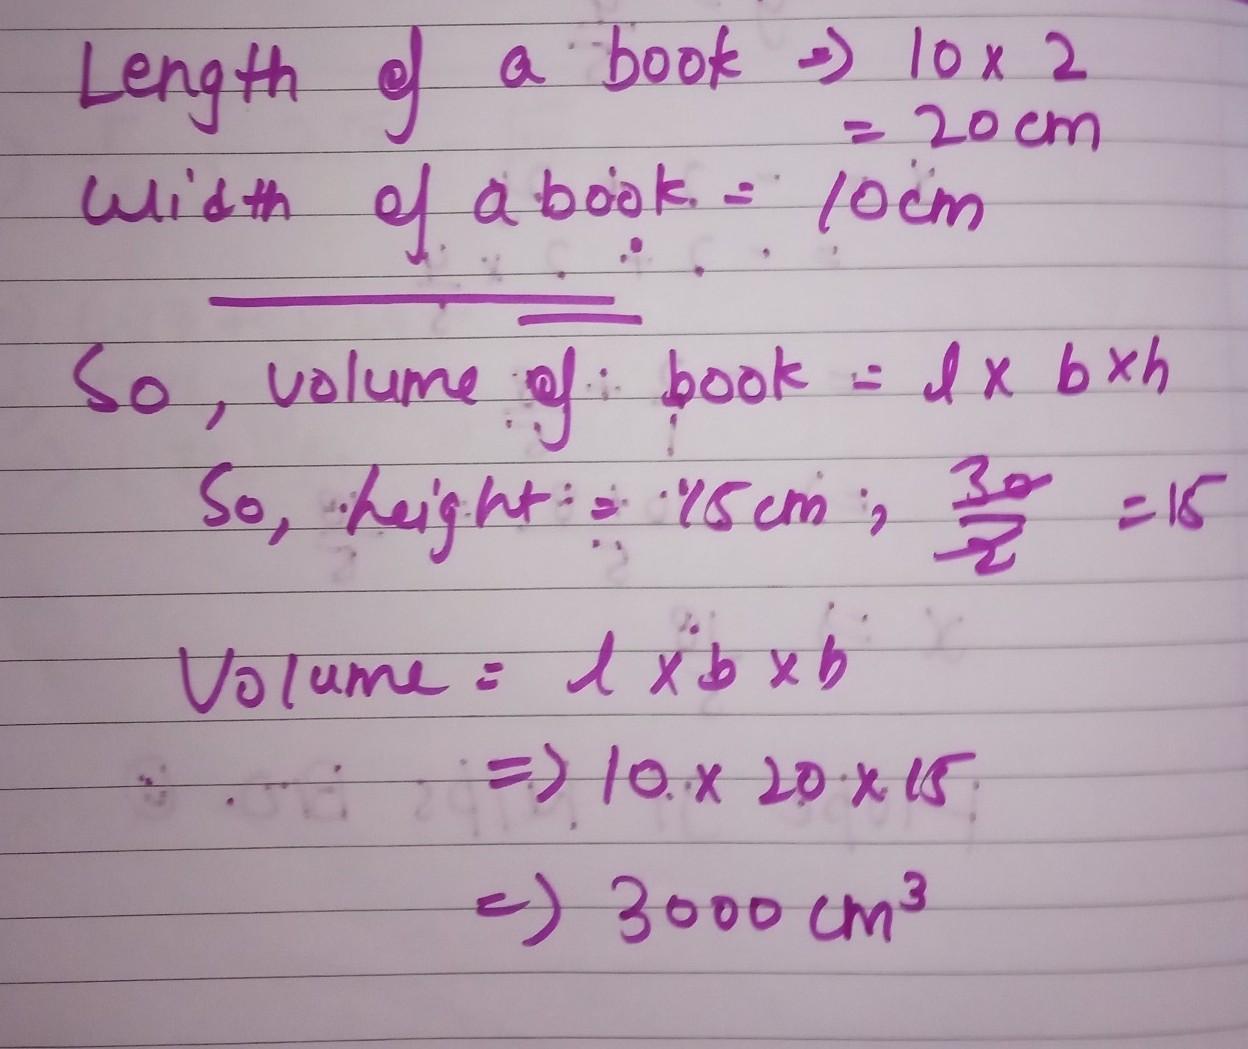 Length of a book => 10 x 2
= 20 cm
Width of a book = 10cm
So, volume of book = l x b x h
So, height = 15 cm ; 30/2 = 15
Volume = l x b x b
=> 10 x 20 x 15
=> 3000 cm³